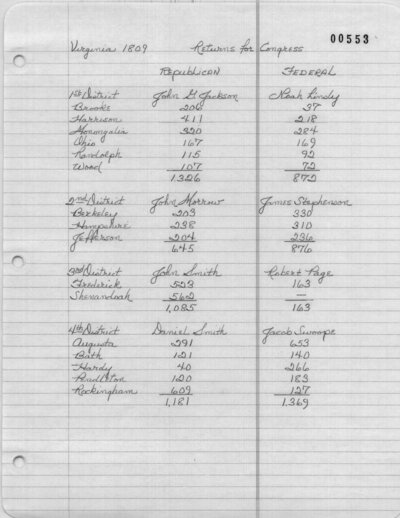 00553
Virginia 1809 Returns for Congress
Republican Federal
1st District John G Jackson Noah Linsly
Brooke 206 37
Harrison 411 218
Monongalia 320 284
Ohio 167 169
Randolph 115 92
Wood 107 72
1326 872
2nd District John Morrow James Stephenson
Berkeley 203 330
Hampshire 238 310
Jefferson 204 236
645 876
3rd District John Smith Robert Page
Frederick 523 163
Shenandoah 562 —
1,085 163
4th District Daniel Smith Jacob Swoope
Augusta 291 653
Bath 121 140
Hardy 40 266
Pendleton 120 183
Rockingham 609 127
1,181 1,369